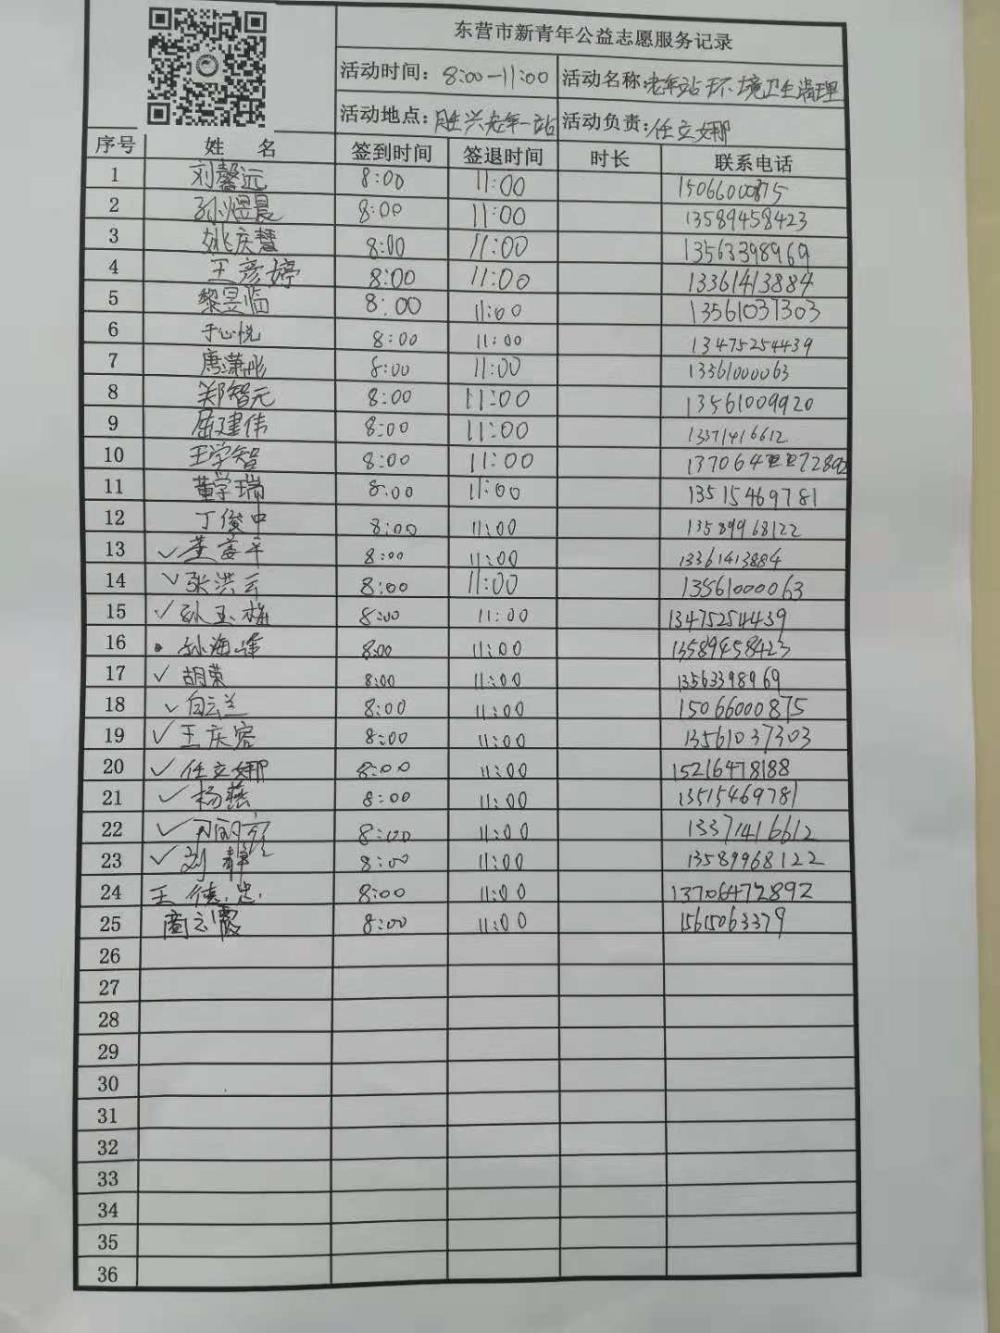 东营市新青年公益志愿服务记录
活动时间：8:00-11:00 活动名称：老年站环境卫生清理
活动地点：胜兴老年一站 活动负责：任立娜
序号 姓名 签到时间 签退时间 时长 联系电话
1 刘馨远 8:00 11:00 15066000875
2 孙煜晨 8:00 11:00 13589458423
3 姚庆慧 8:00 11:00 13563398969
4 王彦婷 8:00 11:00 13361413884
5 黎昱临 8:00 11:00 13561037303
6 于心悦 8:00 11:00 13475254439
7 唐潇彤 8:00 11:00 13561000063
8 郑智元 8:00 11:00 13561009920
9 屈建伟 8:00 11:00 13371416612
10 王学智 8:00 11:00 13706472892
11 董学瑞 8:00 11:00 13515469781
12 丁俊中 8:00 11:00 13589968122
13 ✓ 董益平 8:00 11:00 13361413884
14 ✓ 张洪云 8:00 11:00 13561000063
15 ✓ 孙玉梅 8:00 11:00 13475254439
16 孙海峰 8:00 11:00 13589458423
17 ✓ 胡荣 8:00 11:00 13563398969
18 ✓ 白云兰 8:00 11:00 15066000875
19 ✓ 王庆容 8:00 11:00 13561037303
20 ✓ 任立娜 8:00 11:00 15216478188
21 ✓ 杨燕 8:00 11:00 13515469781
22 ✓ 8:00 11:00 13371416612
23 ✓ 刘静 8:00 11:00 13589968122
24 王德忠 8:00 11:00 13706472892
25 商云霞 8:00 11:00 15615063379
26
27
28
29
30
31
32
33
34
35
36